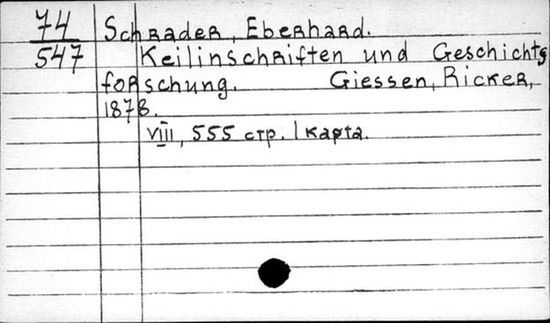 74 Schrader, Eberhard.
547 Keilinschriften und Geschichts
forschung. Giessen, Ricker,
1878.
VIII, 555 стр. 1 карта.